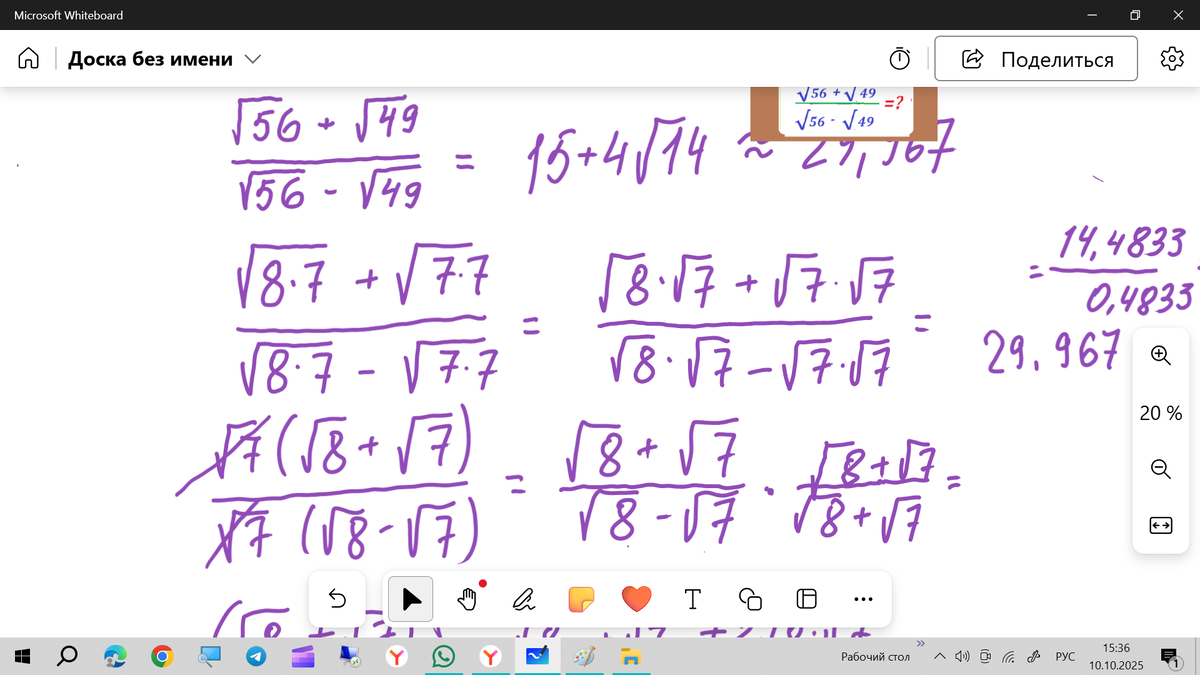 Microsoft Whiteboard
Доска без имени
Поделиться
√56 + √49 / √56 - √49 =?
√56 + √49 / √56 - √49 = 15+4√14 ≈ 29,967
√8·7 + √7·7 / √8·7 - √7·7 = √8·√7 + √7·√7 / √8·√7 - √7·√7 = 14,4833 / 0,4833
29.967
20 %
√7(√8+√7) / √7 (√8-√7) = √8+√7 / √8-√7 · √8+√7 / √8+√7 =
T
Рабочий стол
РУС
15:36
10.10.2025
1